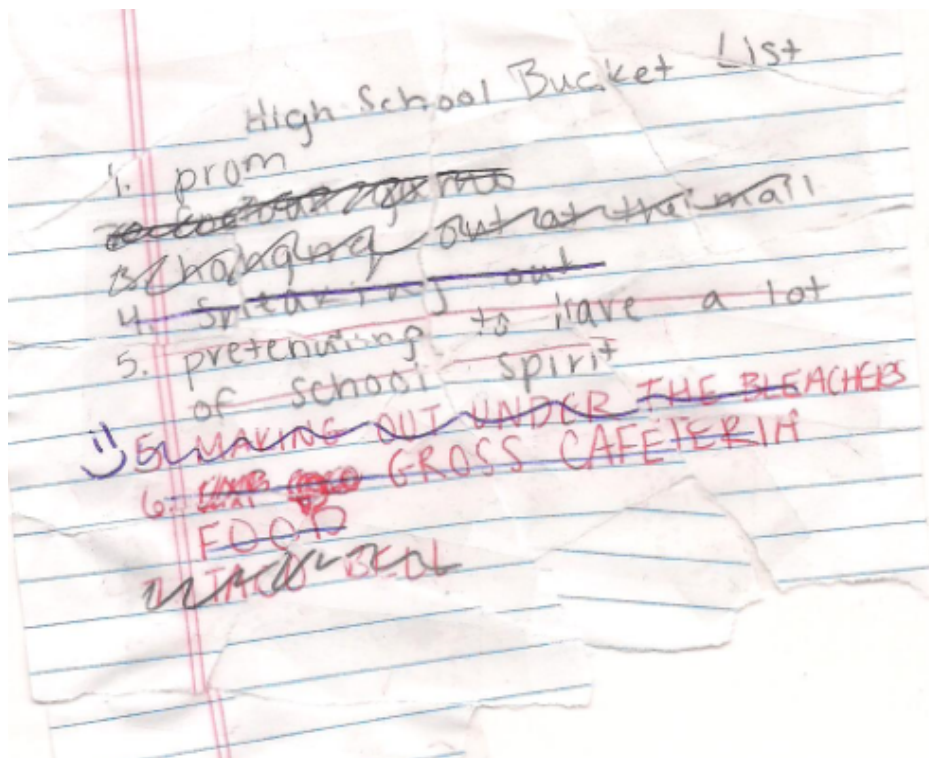 High School Bucket List
1. prom
football game
3. hanging out at the mall
4. sneaking out
5. pretending to have a lot
of school spirit
5. MAKING OUT UNDER THE BLEACHERS
6. GROSS CAFETERIA
FOOD
TACO BELL